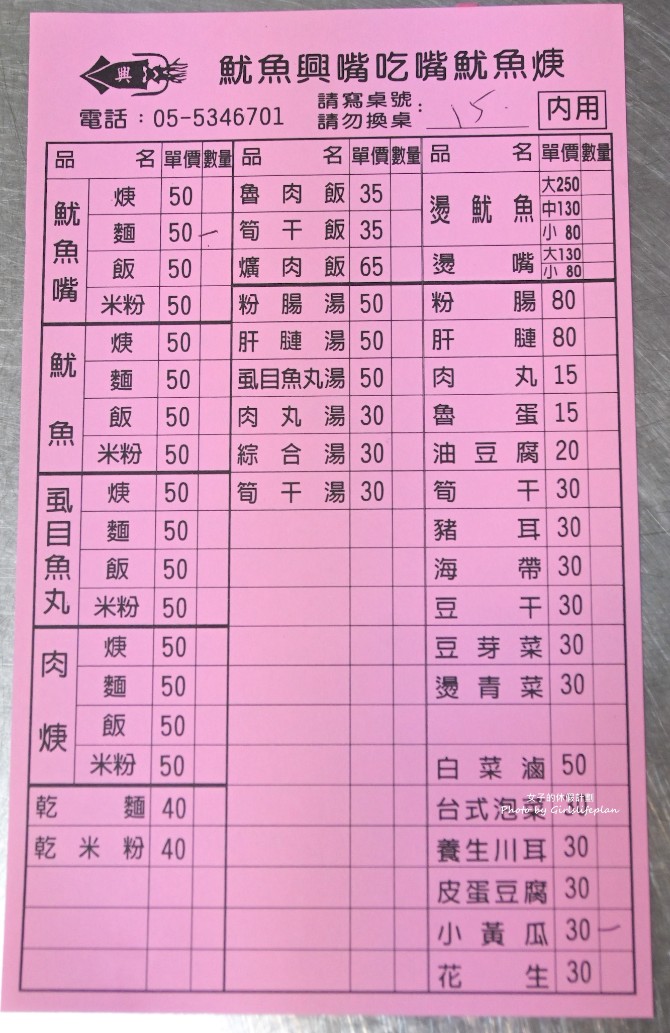 興
魷魚興嘴吃嘴魷魚焿
電話：05-5346701
請寫桌號
請勿換桌：15.
内用
品名 單價 數量
魷魚嘴
焿 50
麵 50 一
飯 50
米粉 50
魷魚
焿 50
麵 50
飯 50
米粉 50
虱目魚丸
焿 50
麵 50
飯 50
米粉 50
肉焿
焿 50
麵 50
飯 50
米粉 50
乾麵 40
乾米粉 40
品名 單價 數量
魯肉飯 35
筍干飯 35
爌肉飯 65
粉腸湯 50
肝膗湯 50
虱目魚丸湯 50
肉丸湯 30
綜合湯 30
筍干湯 30
品名 單價 數量
燙魷魚
大250
中130
小 80
燙嘴
大130
小 80
粉腸 80
肝膗 80
肉丸 15
魯蛋 15
油豆腐 20
筍干 30
豬耳 30
海帶 30
豆干 30
豆芽菜 30
燙青菜 30
白菜滷 50
台式泡菜
女子的休假計劃
Photo by Girlslifeplan
養生川耳 30
皮蛋豆腐 30
小黃瓜 30 一
花生 30